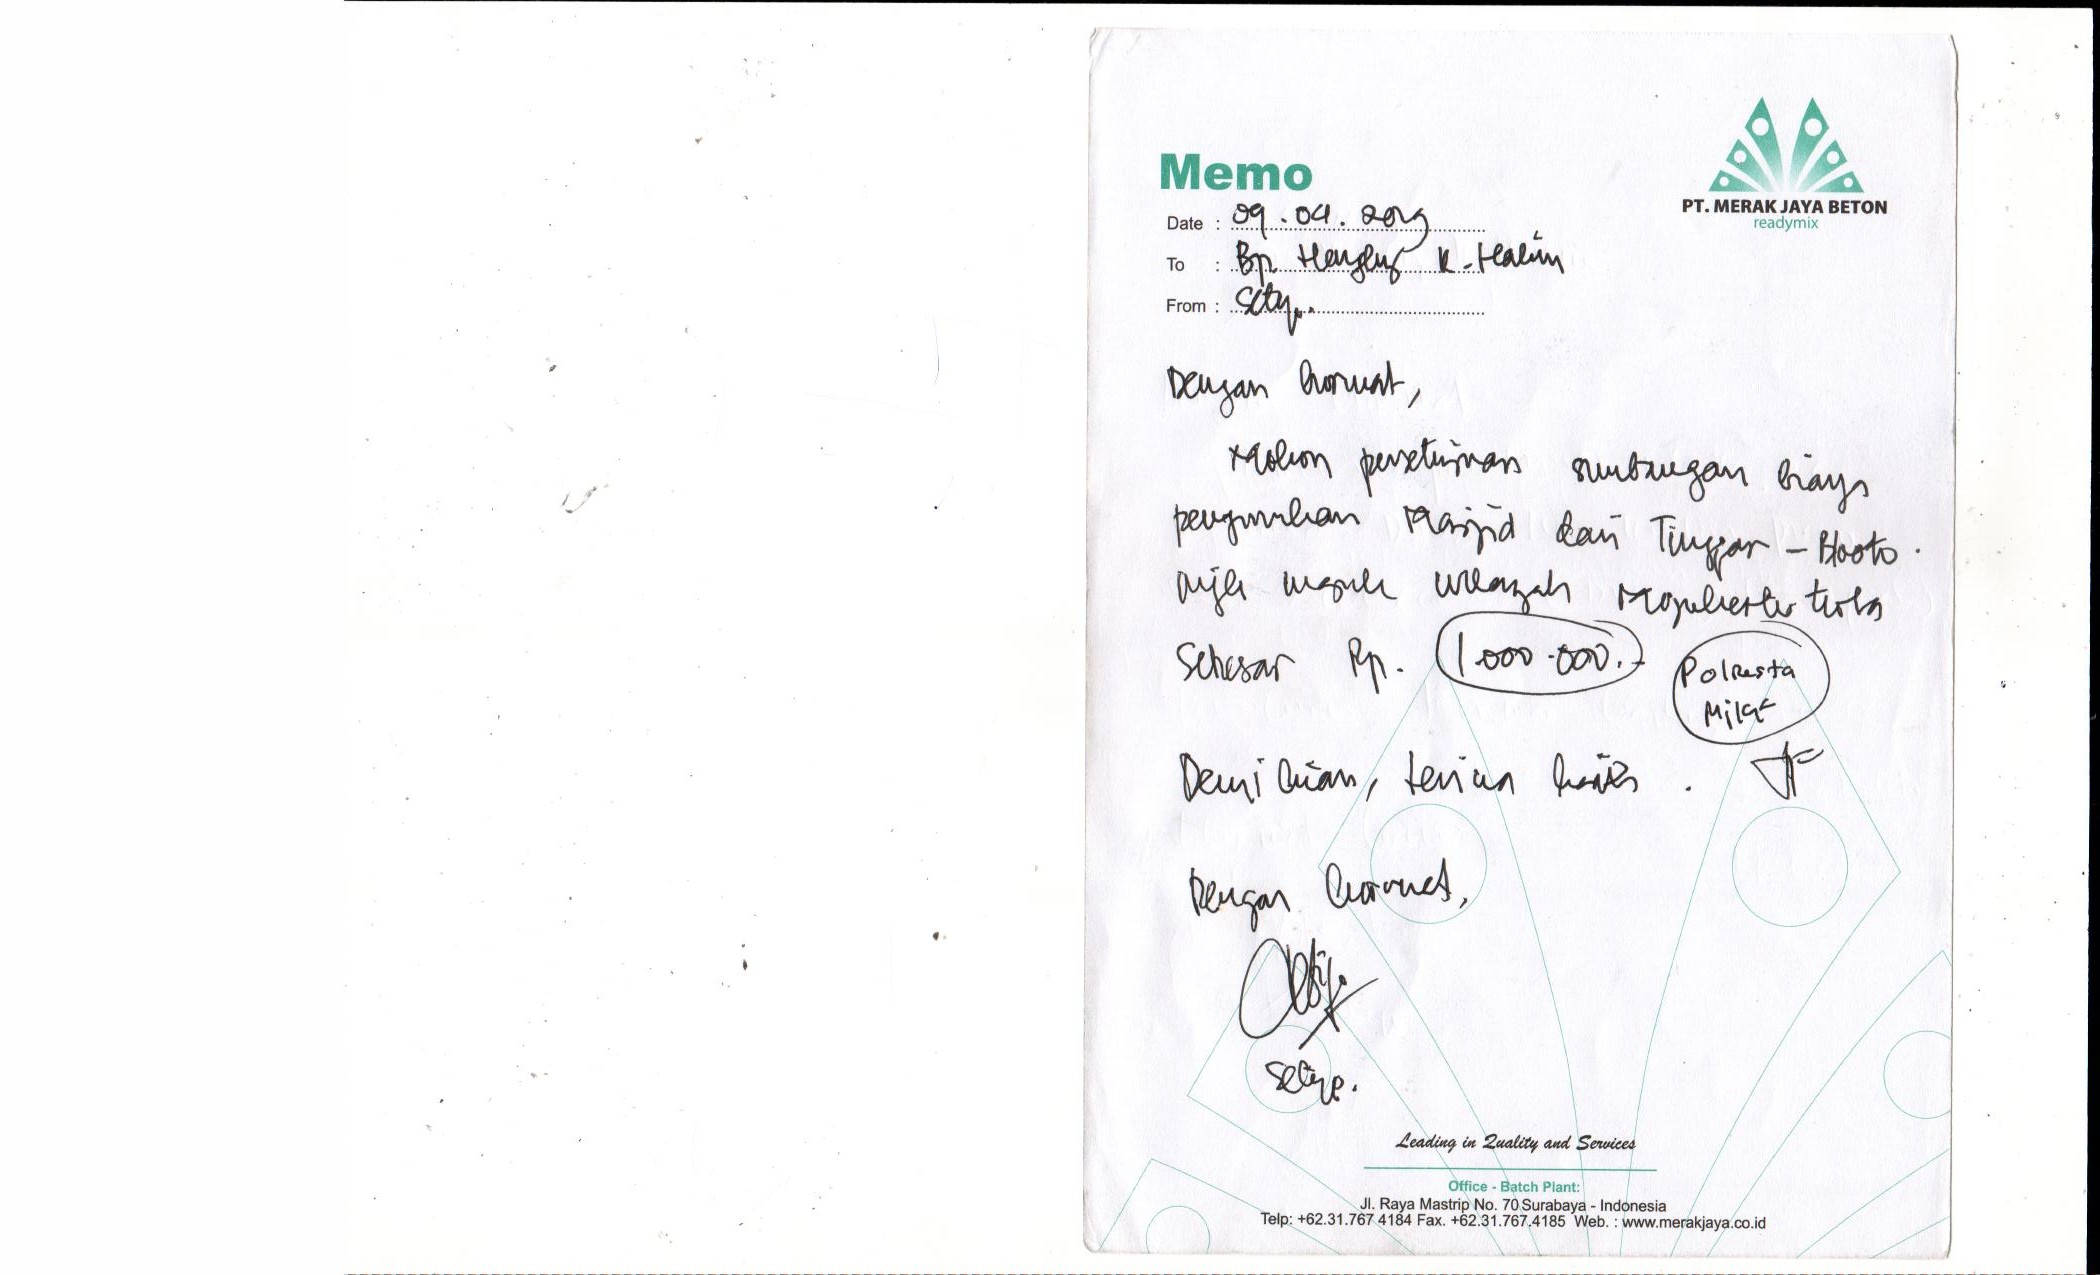 Memo
PT. MERAK JAYA BETON
readymix
Date : 09.04.2019
To : Bp. K. Halim
From : Setyo
Dengan hormat,
Mohon persetujuan sumbangan biaya
Masjid dari Tinggar - Blooto.
masuk wilayah Mojokerto kota
Sebesar Rp. 1.000.000.-
Polresta
Demikian, terima kasih.
Dengan hormat,
Setyo.
Leading in Quality and Services
Office - Batch Plant:
Jl. Raya Mastrip No. 70 Surabaya - Indonesia
Telp: +62.31.767 4184 Fax. +62.31.767.4185 Web. : www.merakjaya.co.id